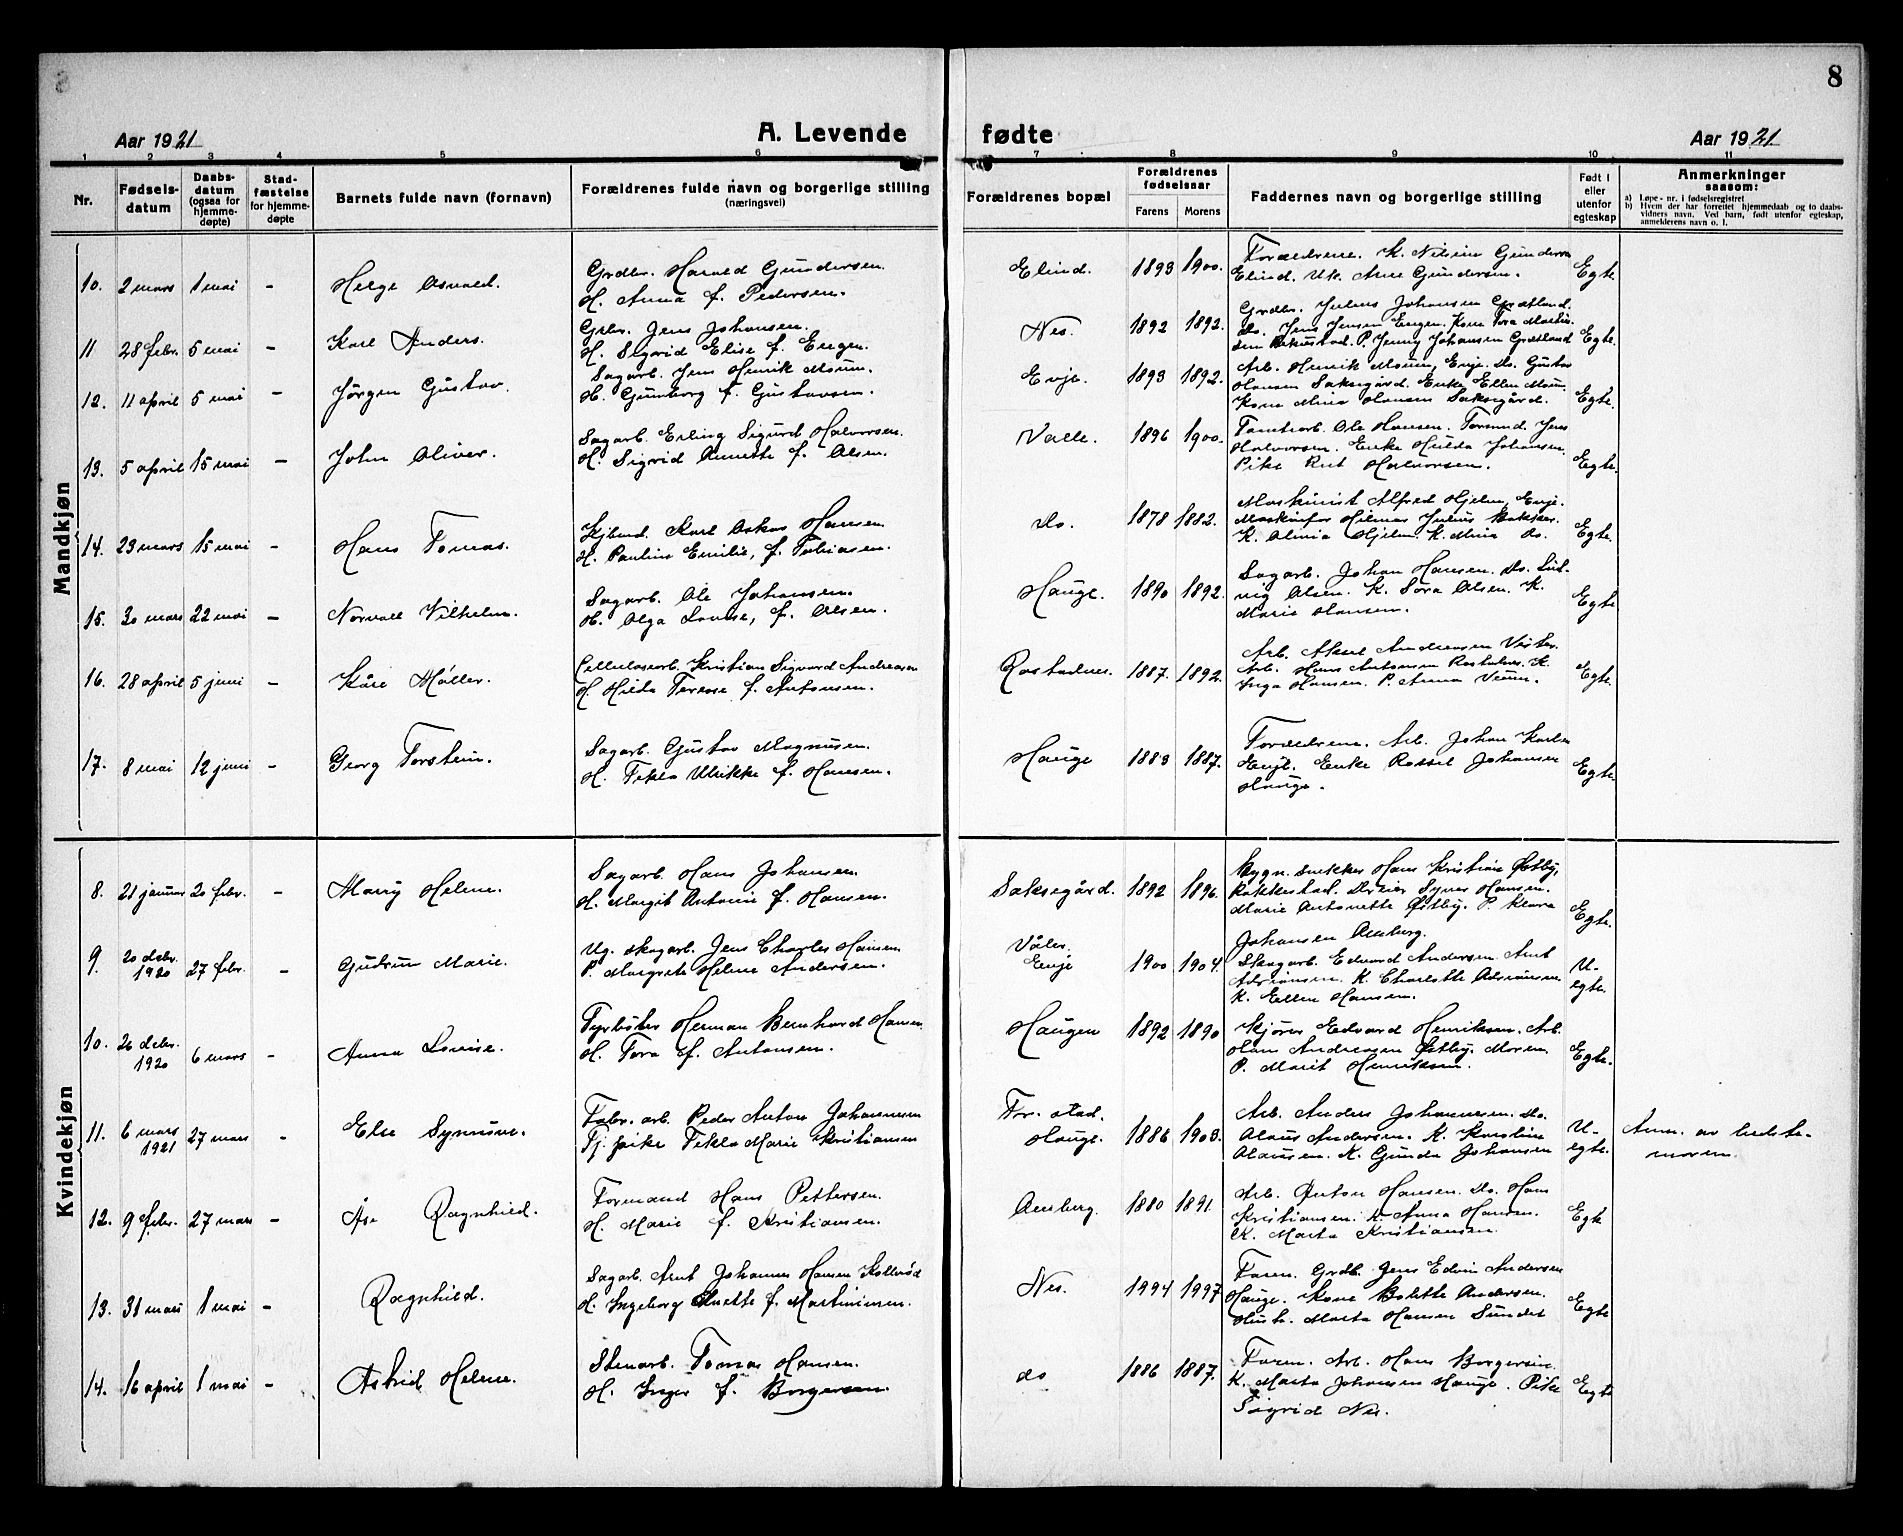 8
Aar 1921 A. Levende fødte Aar 1921
1 2 3 4 5 6 7 8 9 10 11
Nr.
Fødsels-
datum
Daabs-
datum
(ogsaa for
hjemme-
døpte)
Stad-
fæstelse
for hjemme-
døpte
Barnets fulde navn (fornavn)
Forældrenes fulde navn og borgerlige stilling
(næringsvei)
Forældrenes bopæl
Forældrenes
fødselsaar
Farens Morens
Faddernes navn og borgerlige stilling
Født i
eller
utenfor
egteskap
Anmerkninger
saasom:
a) Løpe-nr. i fødselsregistret
b) Hvem der har forrettet hjemmedaab og to daabs-
vidners navn. Ved barn, født utenfor egteskap,
anmelderens navn o. l.
Mandkjøn
10. 2 mars 1 mai - Helge Osvald.
Grdbr. Harald Gundersen.
H. Anna f. Pedersen.
Elind. 1893 1900.
Forældrene. K. Nilsine Gundersen
Elind. Uk. Arne Gundersen.
Egte.
11 28 febr. 5 mai - Karl Anders.
Grbr. Jens Johansen.
H. Sigrid Elise f. Engen.
Nes. 1892 1892.
Grdbr. Julius Johansen Grætland.
do. Jens Jensen Engen. Kone Tora Martin-
sen P. Jenny Johansen Grætland
Egte.
12. 11 april 5 mai - Jørgen Gustav.
Sagarb. Jens Henrik Moum.
H. Gunborg f. Gustavsen.
Evje. 1893 1892.
Arb. Henrik Moum, Evje. Do. Gustav
Hansen Saksegård. Enke Ellen Moum
Kone Mina Hansen Saksegård.
Egte.
13. 5 april 15 mai - John Oliver.
Sagarb. Erling Sigurd Halvorsen.
H. Sigrid Annette f. Olsen.
Valle. 1896 1900.
Tomtearb. Ole Hansen. Formand Jens
Halvorsen. Enke Hulda Johansen.
Pike Rut Halvorsen.
Egte.
14. 23 mars 15 mai - Hans Tomas.
Karl Oskar Hansen
H. Pauline Emilie, f. Tobiasen.
do. 1878 1882.
Maskinist Alfred Hjelm, Evje.
Hilmar Julius Bakke.
K. Olivia Hjelm. K. Mina do.
Egte.
15. 30 mars 22 mai - Norvall Vilhelm.
Sagarb. Ole Johansen.
H. Olga Lovise, f. Olsen.
Hauge. 1890 1892.
Sagarb. Johan Hansen. Do. Lud-
vig Olsen. K. Sora Olsen. K.
Marie Hansen.
Egte
16. 28 april 5 juni - Kåre Møller.
Cellulosearb. Kristian Sigvard Andreasen
H. Hilda Terese f. Antonsen.
Rostadnes. 1887. 1892.
Arb. Aksel Andreasen
Arb. Hans Antonsen Rostadnes. K.
Inga Hansen. P. Anna
Egte.
17. 8 mai 12 juni - Georg Torstein.
Sagarb. Gustav Magnusen.
H. Tekla Ulrikke f. Hansen.
Hauge 1883 1887.
Forældrene. Arb. Johan Karlsen
Evje. Enke Rossel Johansen
Hauge.
Egte.
Kvindekjøn
8. 21 januar 20 febr. - Marry Helene.
Sagarb Hans Johansen
H. Margit Antonie f. Hansen.
Saksegård. 1892 1896.
Bygn. snekker Hans Kristian Østby,
Rakkestad. Dreier Syver Hansen.
Marie Antonette Østby. P. Klara
Johansen Aaleberg.
Egte.
9. 20 decbr. 1920 27 febr. - Gudrun Marie.
Ug. skogarb. Jens Charles Hansen
P. Margrete Helene Andersen.
Våler.
Evje
1900 1904.
Skogarb. Edvard Andersen. Arnt
Adriansen. K. Charlotte Adriansen
K. Ellen Hansen.
U-
egte.
10. 26 decbr. 1920 6 mars - Anna Lovise.
Fyrbøter Herman Bernhard Hansen
H. Tora f. Antonsen.
Haugen 1892 1890
Kjører Edvard Henriksen. Arb.
Hans Andreasen Østby. Moren.
P. Marit Henriksen.
Egte.
11. 6 mars 1921 27 mars - Else Synnøve.
Fabr. arb. Peder Anton Johannesen
Tj. pike Tekla Marie Kristiansen
Fr. stad.
Hauge.
1886 1903.
Arb. Anders Johannesen. Do.
Olaus Andersen. K. Karoline
Olaussen. K. Gunda Johansen
U-
egte.
Anm. av bedste-
moren.
12. 9 febr. 27 mars - Åse Ragnhild.
Formand Hans Pettersen.
H. Marie f. Kristiansen.
1880 1891.
Arb. Anton Hansen. Do. Hans
Kristiansen. K. Anna Hansen.
K. Marta Kristiansen.
Egte
13. 31 mars 1 mai - Ragnhild.
Sagarb. Arnt Johannes Hansen Kollerød
H. Ingeborg Anette f. Martinsen.
Nes. 1994 1997
Faren. Grdb. Jens Edvin Andersen
Hauge. Kone Bolette Andersen.
Hustr. Marta Hansen Sundet
Egte
14. 16 april 1 mai - Astrid Helene.
Stenarb. Tomas Hansen.
H. Inger f. Borgersen.
do 1886 1887.
Faren. Arb. Hans Borgersen.
K. Marta Johansen Hauge. Pike
Sigrid Nes.
Egte